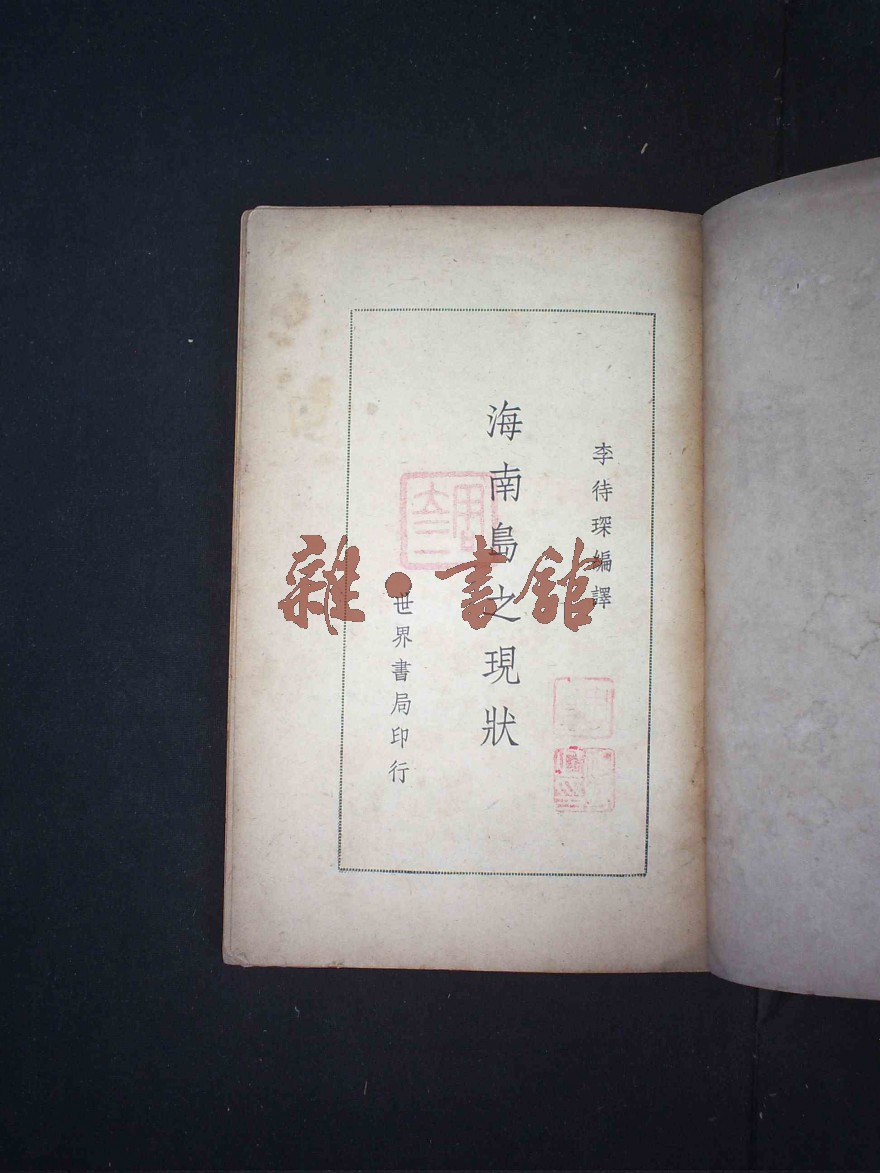 李待琛編譯
海南島之現狀
世界書局印行
雜·書館